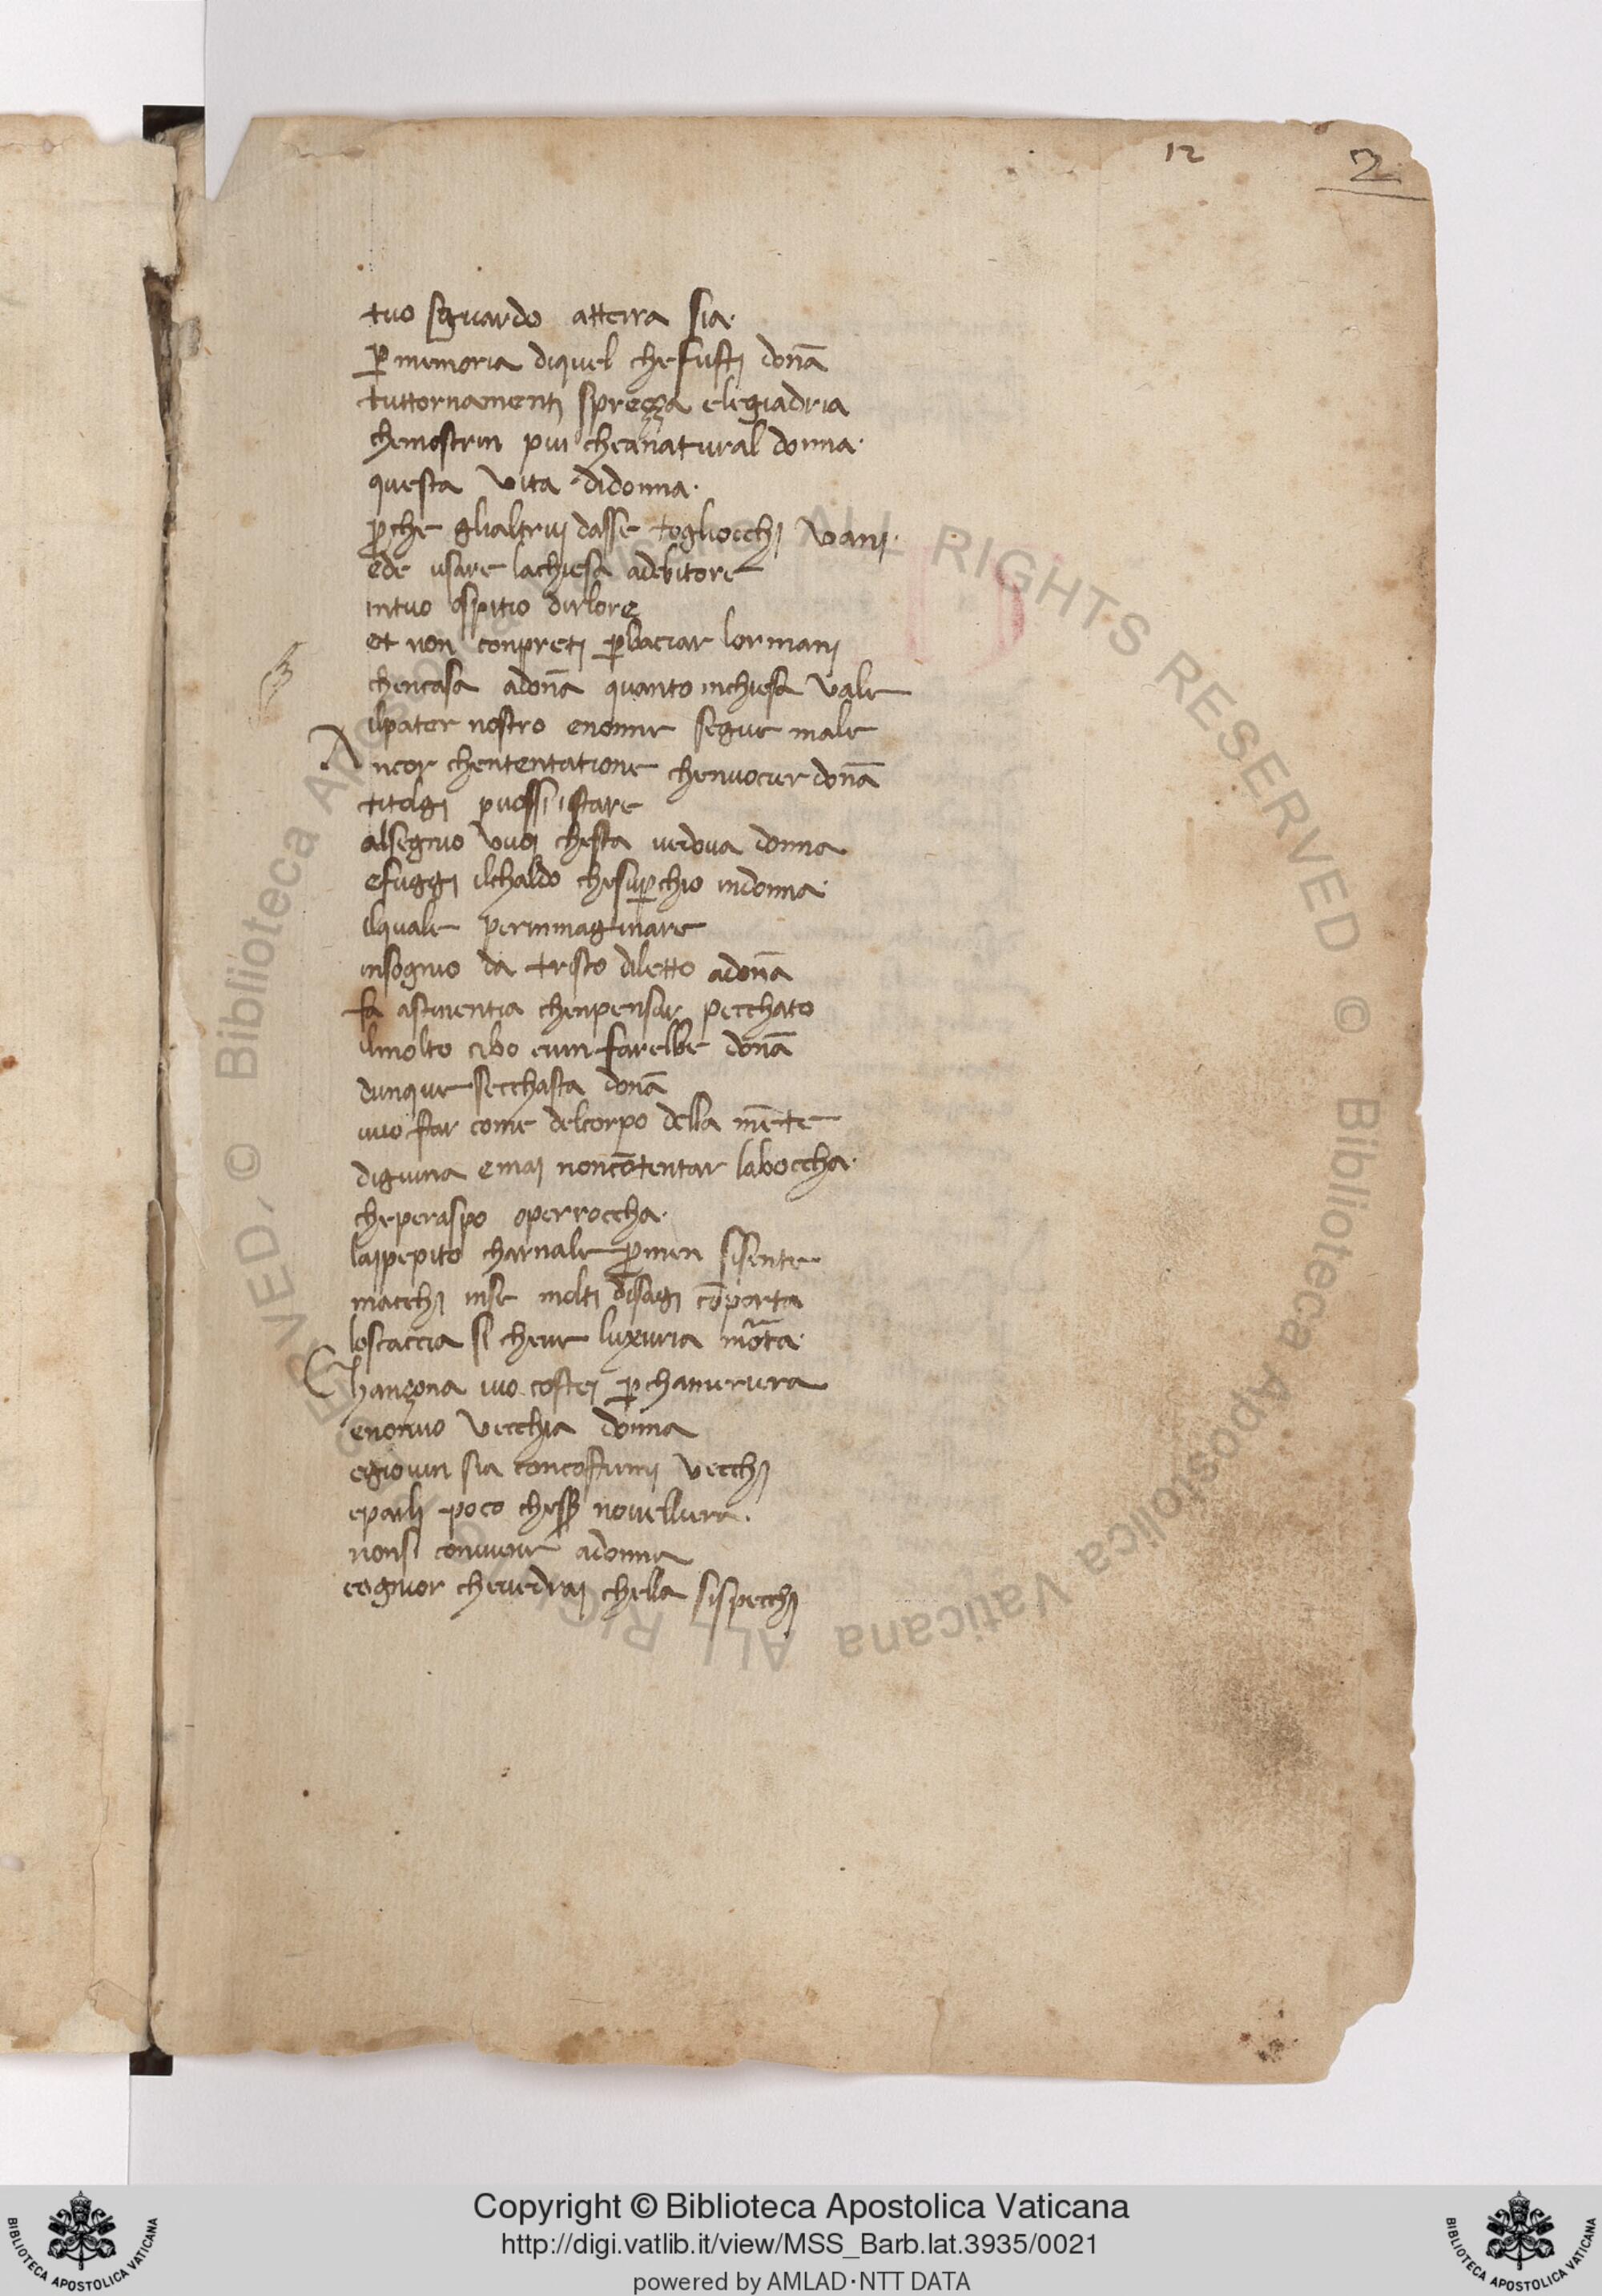 12
2
tuo sguardo atterra sia.
ꝑ memoria diquel chefusti donā
tuttornamenti spreçça elegiadria
chemostrin piu cheañatural donna.
questa vita didonna.
ꝑche glialtrui dasse togliocchi vani.
ede usare lachiesa adebitore
intuo ospitio dirlore
et non conpreti ꝑbaciar lormani
chencasa adonā quanto inchiesa vale
ilpater nostro enonne segue male
Ancor chententatione chenuocier donā
titolgi puossi istare
alsegnio vuoi chesta uedoua donna
efuggi ilchaldo chesuꝑchio indonna.
ilquale perinmaginare
insognio da tristo diletto adonā
fa astinentia chenpensar pecchato
ilmolto cibo eiun farelbe donā
dunque secchasta donā
uuo far come delcorpo della mēte
digiuna emai noncōtentar laboccha.
cheperaspo operroccha.
lappepito charnale ꝑmen sisente
macchi inse molti disagi cōporta
loscaccia si cheue luxuria mōta.
Chançona iuo costei ꝑchamerera
enonuo vecchia donna
egiouin sia concostumi vecchi
eparli poco chess novellera.
nonsi conuiene adonne
eognior cheuedrai chella sispecchi
© Biblioteca Apostolica Vaticana ALL RIGHTS RESERVED
© Biblioteca Apostolica Vaticana ALL RIGHTS RESERVED,
Copyright © Biblioteca Apostolica Vaticana
http://digi.vatlib.it/view/MSS_Barb.lat.3935/0021
powered by AMLAD·NTT DATA
BIBLIOTECA APOSTOLICA VATICANA
BIBLIOTECA APOSTOLICA VATICANA